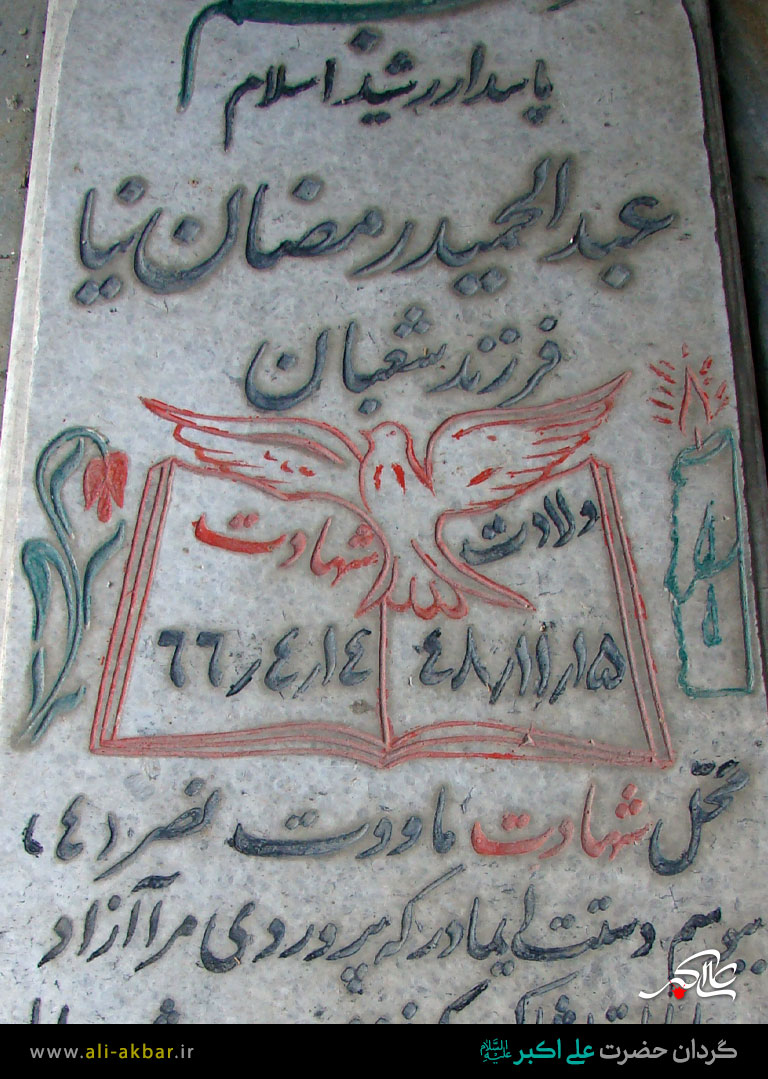 پاسدار رشید اسلام
عبدالحمید رمضان نیا
فرزند شعبان
ولادت شهادت
٤٨٫١١٫١۵ ٦٦٫٤٫١٤
محل شهادت ماووت نصر (٤)
ببوسم دستت ای مادر که پروردی مرا آزاد
علی اکبر
www.ali-akbar.ir گردان حضرت علی اکبر علیه السلام